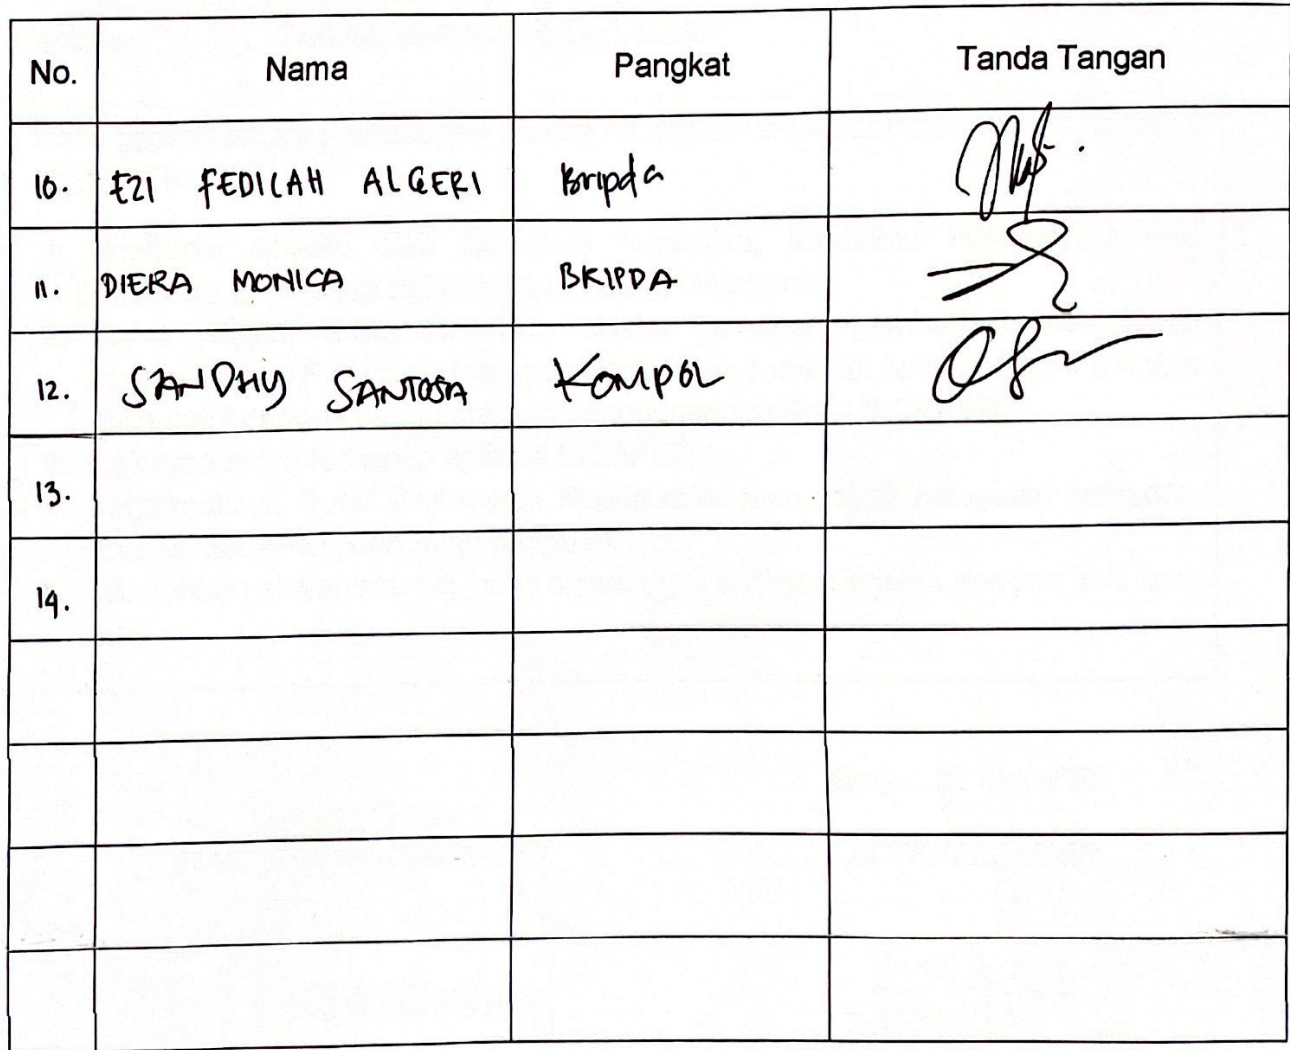 No. Nama Pangkat Tanda Tangan
10. EZI FEDILAH ALGERI Bripda
11. DIERA MONICA BRIPDA
12. SANDHY SANTOSA KOMPOL
13.
14.